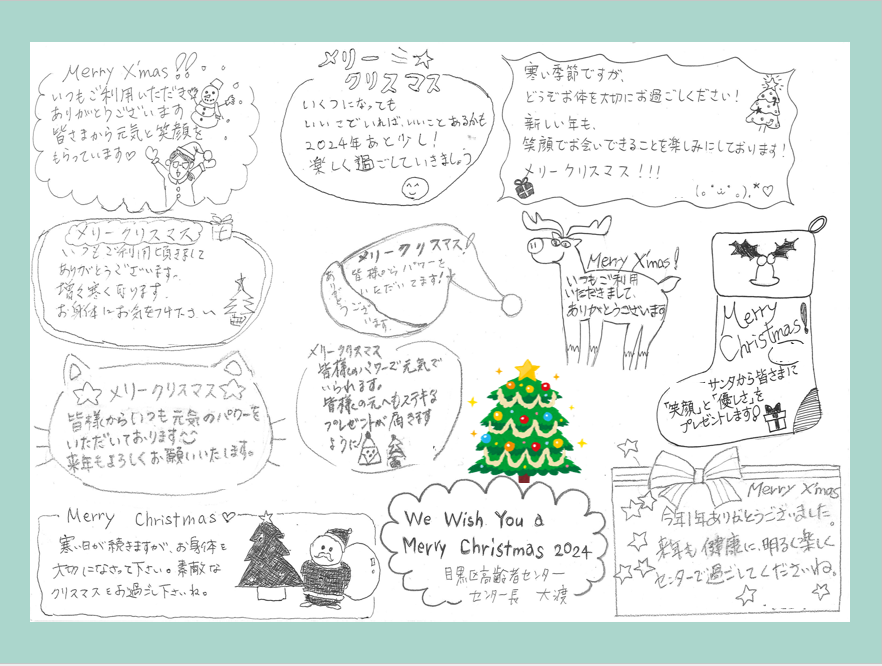 Merry X'mas!!
いつもご利用いただき
ありがとうございます
皆さまから元気と笑顔を
もらっています♡
メリー
クリスマス
いくつになっても
いいことあるかも
2024年あと少し!
楽しく過ごしていきましょう
寒い季節ですが、
どうぞお体を大切にお過ごしください!
新しい年も、
笑顔でお会いできることを楽しみにしております!
メリークリスマス!!!
メリークリスマス
いつもご利用頂きまして
ありがとうございます。
増々寒くなります。
お身体にお気を付け下さい
メリークリスマス!
皆様からパワーを
いただいてます!
ありがとう
ございます。
Merry X'mas!
いつもご利用
いただきまして、
ありがとうございます
Merry
Christmas!
サンタから皆さまに
「笑顔」と「優しさ」を
プレゼントします!
メリークリスマス
皆様からいつも元気のパワーを
いただいております
来年もよろしくお願いいたします。
メリークリスマス
皆様のパワーで元気で
いられます。
皆様の元へもステキな
プレゼントが届きます
ように
Merry Christmas♡
寒い日が続きますが、お身体を
大切になさって下さい。素敵な
クリスマスをお過ごし下さいね。
We Wish You a
Merry Christmas 2024
目黒区高齢者センター
センター長 大渡
Merry X'mas
今年1年ありがとうございました。
来年も健康に、明るく楽しく
センターで過ごしてくださいね。